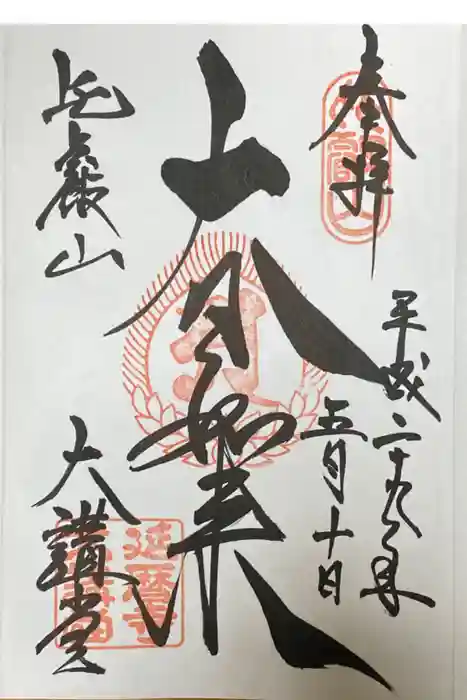 奉拝
平成二十九年
五月十日
大日如来
比叡山
大講堂
延暦寺